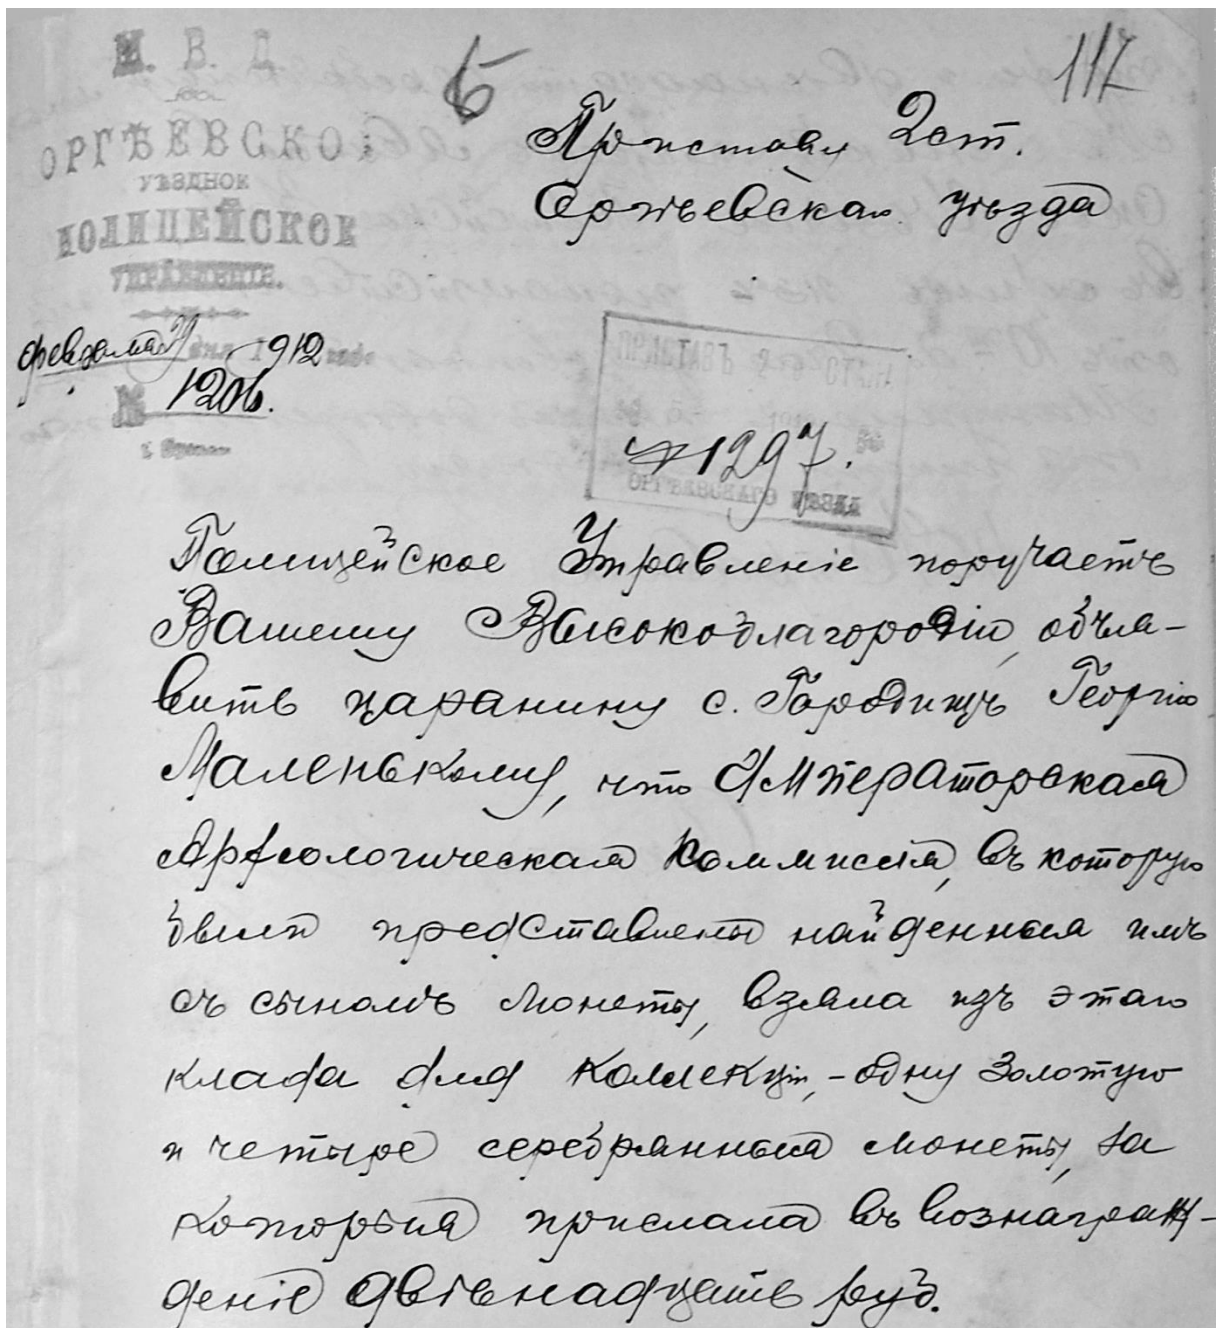 М. В. Д.
ОРГѢЕВСКОЕ
УѢЗДНОЕ
ПОЛИЦЕЙСКОЕ
УПРАВЛЕНІЕ.
Б
117
Приставу 2 ст.
Оргѣевскаго уѣзда
февраля дня 1912 года
№ 1206.
г. Оргѣевъ
ПРИСТАВЪ 2 СТАН
№ 1297.
ОРГѢЕВСКАГО УѢЗДА
Полицейское Управленіе поручаетъ
Вашему Высокоблагородію, объя-
вить царанину с. Городищъ Георгію
Маленькому, что Императорская
Археологическая Коммисія, въ которую
были представлены найденныя имъ
съ сыномъ монеты, взяла изъ этаго
клада для коллекціи, - одну золотую
и четыре серебрянныя монеты, за
которыя прислала въ вознаграж-
деніе двѣнадцать руб.